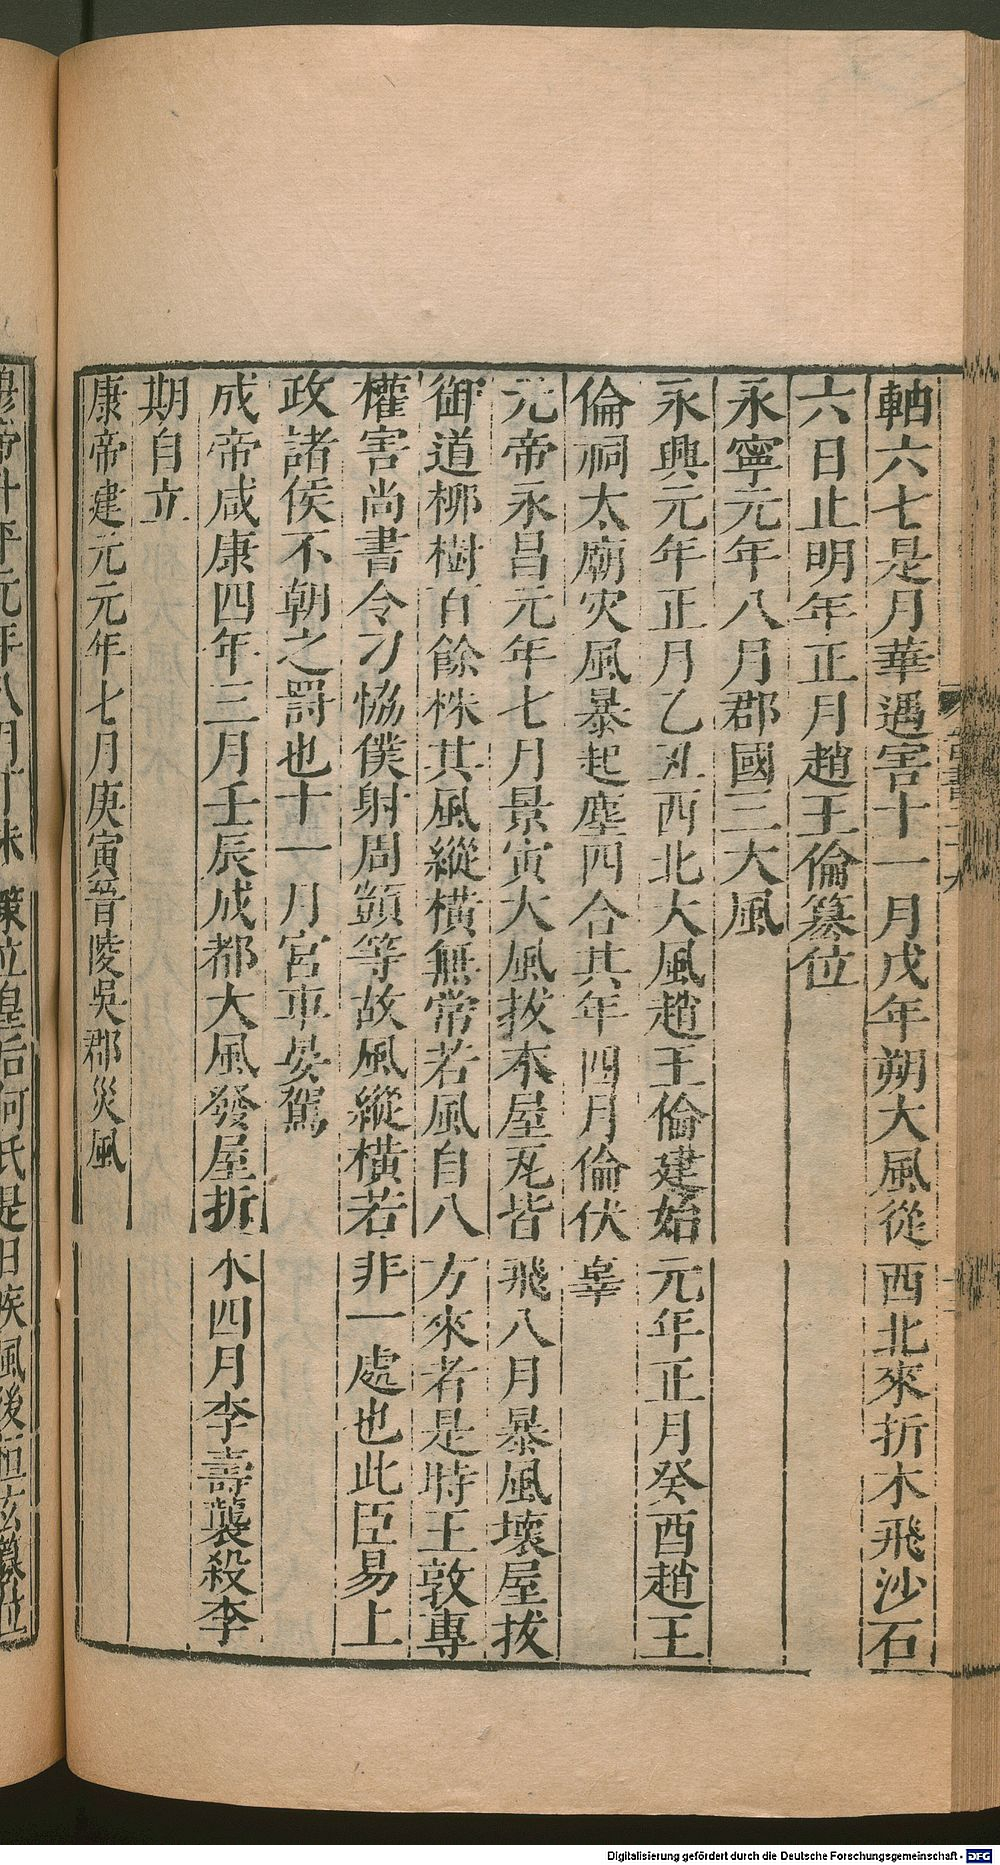 軸六七是月華遇害十一月戊午朔大風從西北來折木飛沙石
六日止明年正月趙王倫簒位
永寧元年八月郡國三大風
永興元年正月乙丑西北大風趙王倫建始元年正月癸酉趙王
倫祠太廟灾風暴起塵四合其年四月倫伏辜
元帝永昌元年七月景寅大風拔木屋瓦皆飛八月暴風壞屋拔
御道柳樹百餘株其風縱橫無常若風自八方來者是時王敦專
權害尚書令刁恊僕射周顗等故風縱橫若非一處也此臣易上
政諸侯不朝之罰也十一月宮車晏駕
成帝咸康四年三月壬辰成都大風發屋折木四月李壽襲殺李
期自立
康帝建元元年七月庚寅晉陵吳郡災風
穆帝升平元年八月丁未策立皇后何氏是日疾風後桓玄簒位
Digitalisierung gefördert durch die Deutsche Forschungsgemeinschaft - DFG